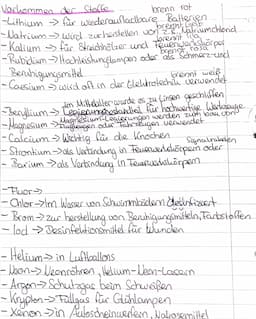 Vorkommen der Stoffe
brennt rot
-Lithium -> für wiederaufladbare Batterien
brennt gelb
-Natrium -> wird zu herstellen von z.B. Natriumchlorid
brennt lila
-Kalium -> für Streichhölzer und Feuerwerkskörper
-Rubidium -> Hochleistungslampen oder als Schmerz- und
Beruhigungsmittel
brennt weiß
-Caesium -> wird oft in der Elektrotechnik verwendet
Im Mittelalter wurde es zu Ringen geschliffen
-Beryllium -> Legierungsbestandteil für hochwertige Werkzeuge
-Magnesium -> Magnesium-Legierungen werden zum bau von
Flugzeugen oder Fahrzeugen verwendet
-Calcium -> Wichtig für die Knochen
Signalraketen
-Strontium -> als Verbindung in Feuerwerkskörpern oder
-Barium -> als Verbindung in Feuerwerkskörpern
-Fluor ->
-Chlor -> Im Wasser von Schwimmbädern desinfiziert
-Brom -> zur herstellung von Beruhigungsmitteln, Farbstoffen
-Iod -> Desinfektionsmittel für Wunden
-Helium -> in Luftballons
-Neon -> Neonröhren, Helium-Neon-Lasern
-Argon -> Schutzgas beim Schweißen
-Krypton -> Füllgas für Glühlampen
-Xenon -> in Autoscheinwerfern, Narkosemittel